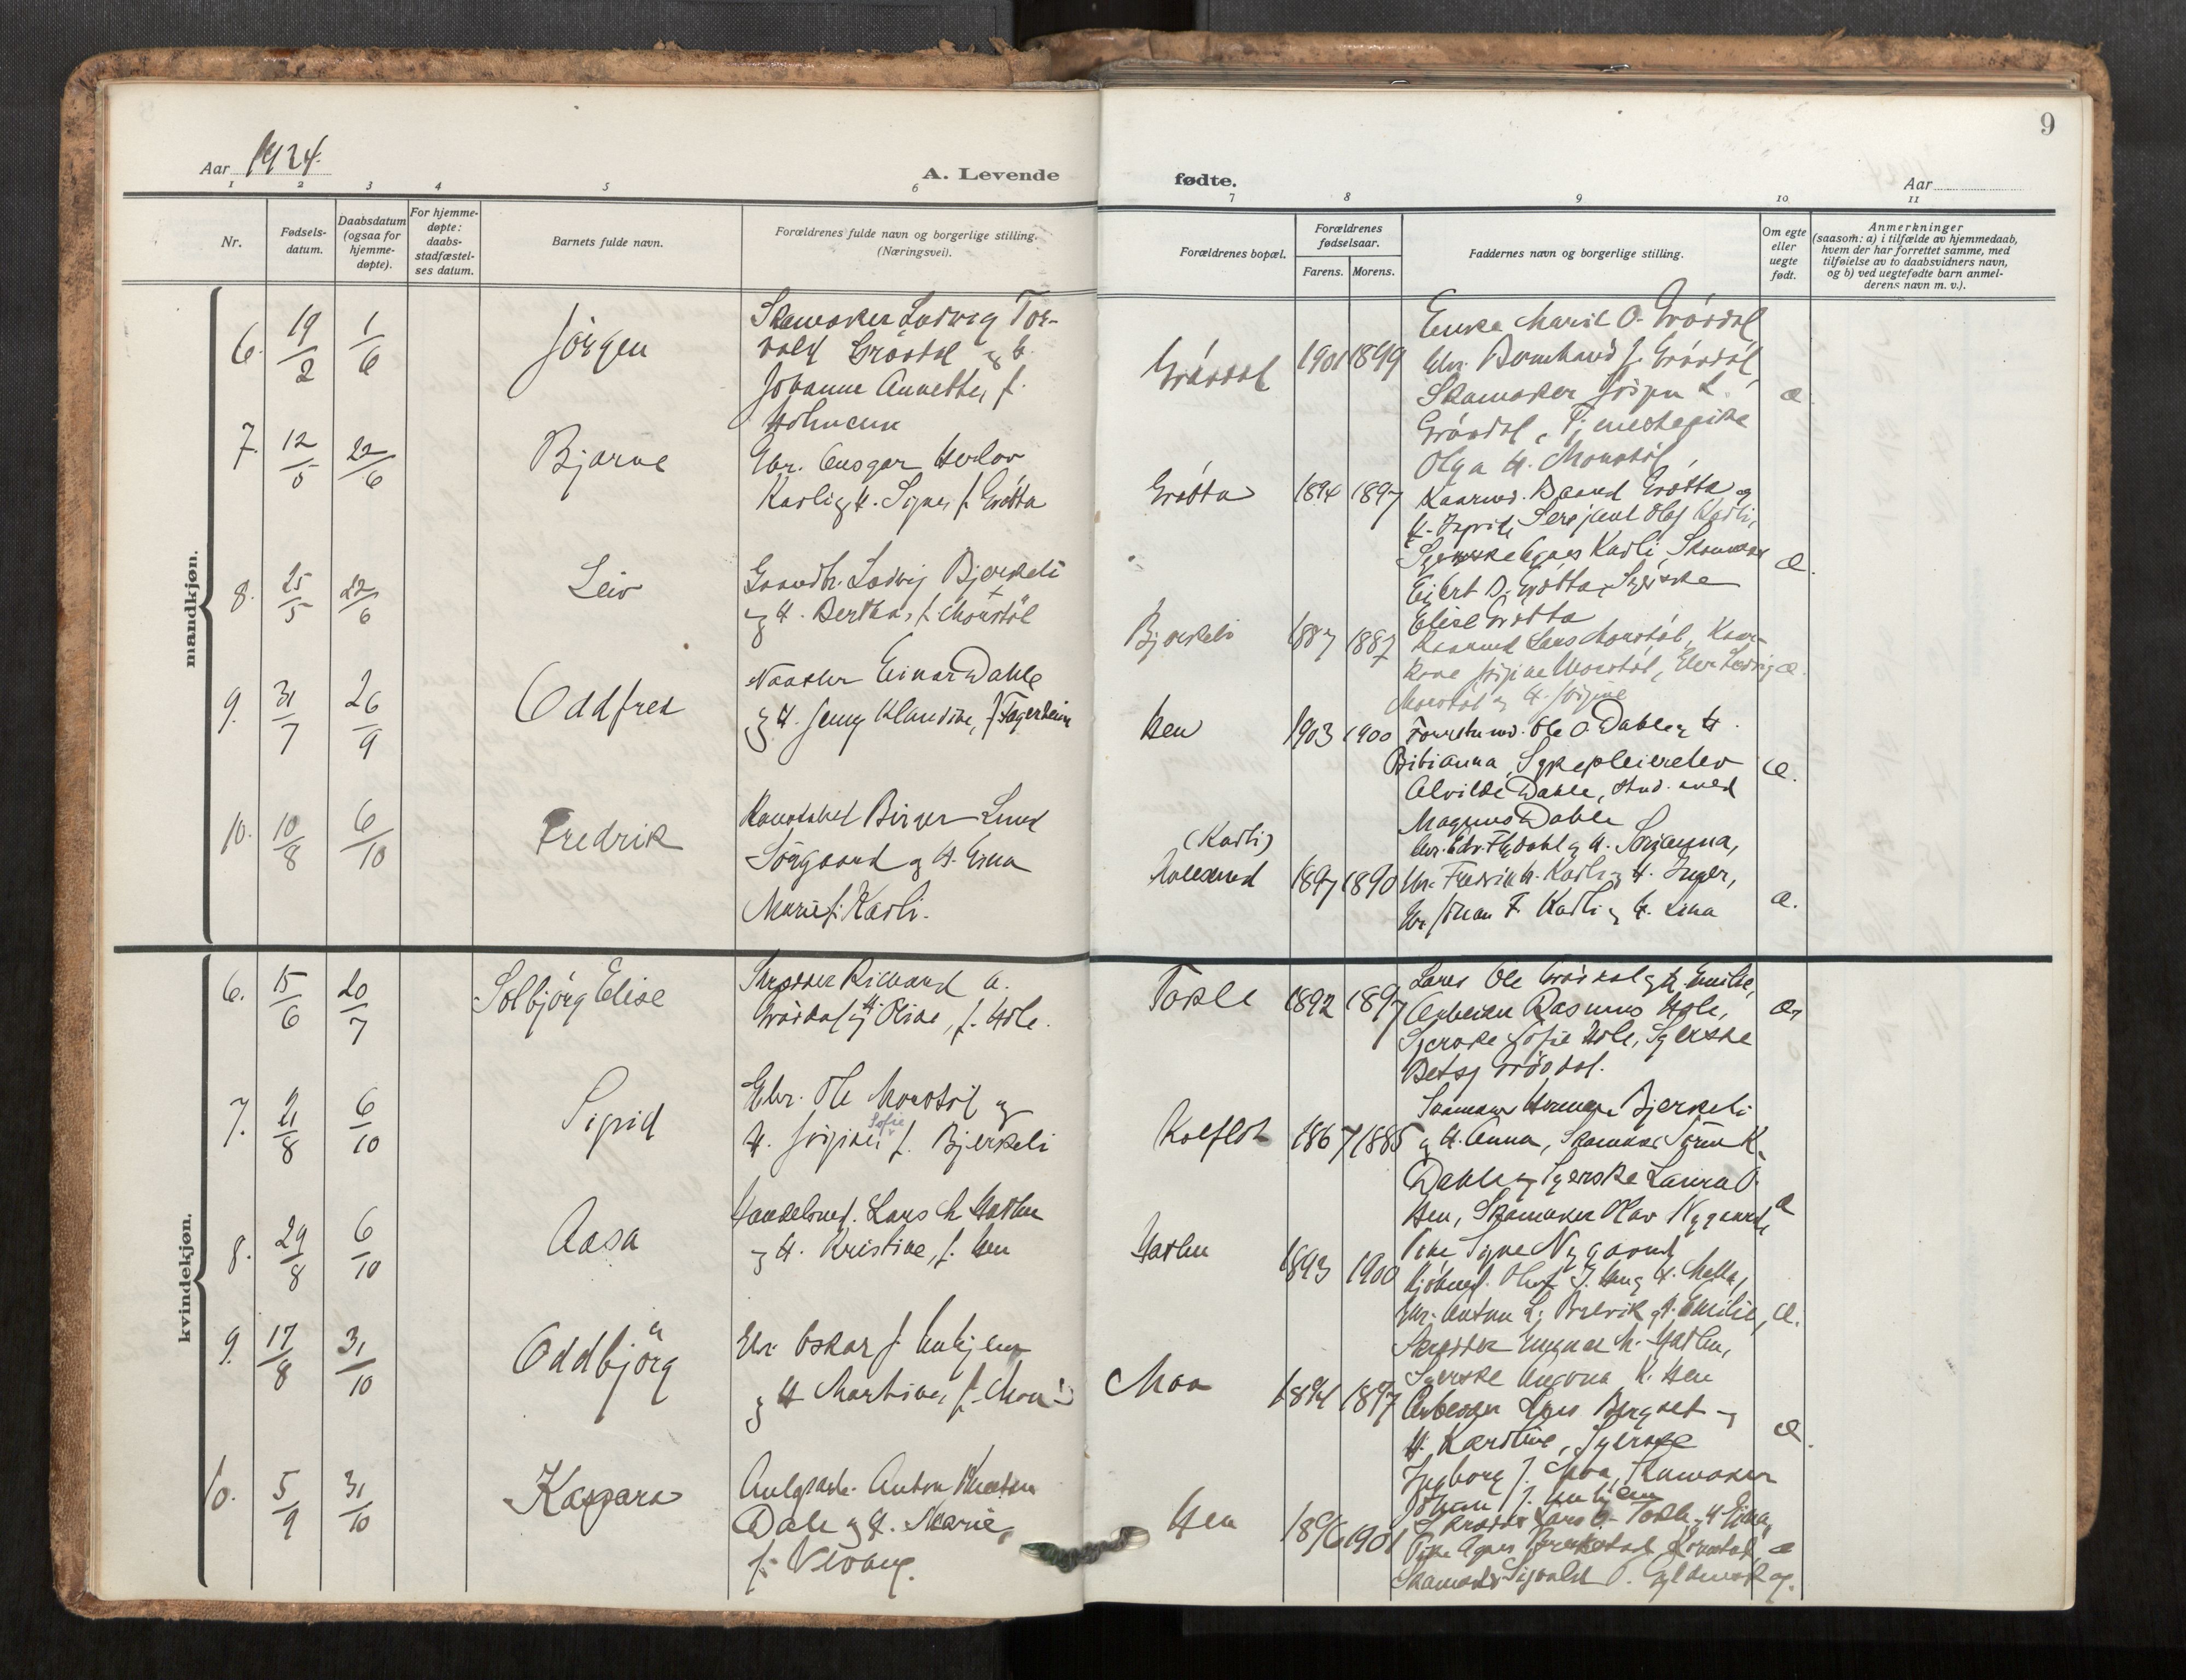 9
Aar 1924.
A. Levende
fødte.
Aar
1 2 3 4 5 6 7 8 9 10 11
Nr.
Fødsels-
datum.
Daabsdatum
(ogsaa for
hjemme-
døpte).
For hjemme-
døpte:
daabs-
stadfæstel-
ses datum.
Barnets fulde navn.
Forældrenes fulde navn og borgerlige stilling.
(Næringsvei).
Forældrenes bopæl.
Forældrenes
fødselsaar.
Farens. Morens.
Faddernes navn og borgerlige stilling.
Om egte
eller
uegte
født.
Anmerkninger
(saasom: a) i tilfælde av hjemmedaab,
hvem der har forrettet samme, med
tilføielse av to daabsvidners navn,
og b) ved uegtefødte barn anmel-
derens navn m. v.).
mandkjøn.
6. 19/2 1/6 Jörgen
Skomaker Ludvig Tor-
vald Grövdal og H.
Johanne Annette, f.
Holmem
Grövdal 1901 1899
Enke Marit O. Grövdal
Gbr. Bernhard J. Grövdal,
Skomaker Jörgen L.
Grövdal, Tjenestepike
Olga H. Monstöl,
æ.
7. 12/5 22/6 Bjarne
Gbr. Ansgar Herlov
Kavli og H. Signe, f. Grötta
Grötta 1894 1897
Kaarmd. Baard Grötta og
H. Ingrid, Sersjant Olaf Kavli,
Syerske Agnes Kavli, Skomaker
Eilert B. Grötta, Syerske
Elise Grötta
æ.
8. 25/5 22/6 Leiv
Gaardbr. Ludvig Bjerkeli
og H. Bertha, f. Monstöl
Bjerkeli 1887 1887
Kaarmd Lars Monstöl, Kaar-
kone Jörgine Monstöl, Gbr Ludvig
Monstöl og H. Jörgine
æ.
9. 31/7 26/9 Oddfred
Einar Dahle
og H. Jenny Klaudine, f. Fagerheim
Hen 1903 1900
Ole O. Dahle og H.
Bibianna, Sykepleierelev
Alvilde Dahle, Stud. med
Magnus Dahle
æ.
10. 10/8 6/10 Fredrik
Konstabel Birger Lund
Sörgaard og H. Erna
Marie f. Kavli.
(Kavli)
Aalesund 1897 1890
Gbr. Edv. Flydahl og H. Sörianna,
Gbr. Fredrik H. Kavli og H. Inger,
Gbr Johan F. Kavli og H. Lina
æ.
kvindekjøn.
6. 15/6 20/7 Solbjörg Elise
Skrædder Rikvard A.
Grövdal og H. Oline, f. Hole.
Tokle 1892 1897
Lars Ole Grövdal og H. Emilie,
Arbeider Rasmus Hole,
Syerske Sofie Hole, Syerske
Betsy Grövdal.
æ
7. 2/8 6/10 Sigrid
Gbr. Ole Monstöl og
H. Jörgine Sofie f. Bjerkeli
Kolflot 1867 1885
Herman Bjerkeli
og H. Anna, Skomaker Sören K.
Dahle og Syerske Laura O.
Hen, Skomaker Olav Nygaard,
Pike Signe Nygaard
æ
8. 29/8 6/10 Aasa
Handelsmd. Lars M. Hatlen
og H. Kristine, f. Hen
Hatlen 1893 1900
Kjöbmd. Olaf J. Hen og H. Malla,
Gbr. Anton L. Brevik og H. Emilie,
Skrædder Gunnar M. Hatlen,
Syerske K. Hen
æ.
9. 17/8 31/10 Oddbjörg
Gbr. Oskar J. Unhjem
og H. Martine, f. Moa
Moa 1894 1897
Arbeider Lars Bergset og
H. Karoline, Syerske
Ingborg J. Moa, Skomaker
Johan J. Unhjem
æ.
10. 5/9 31/10 Kaspara
Anlgsarb. Anton Knutsen
Dale og H. Marie,
f.
Hen 1896 1901
Skrædder Lars Tokle og H. Gina,
Pike Agnes
Skomaker Sigvald O. Gyldenskog.
æ